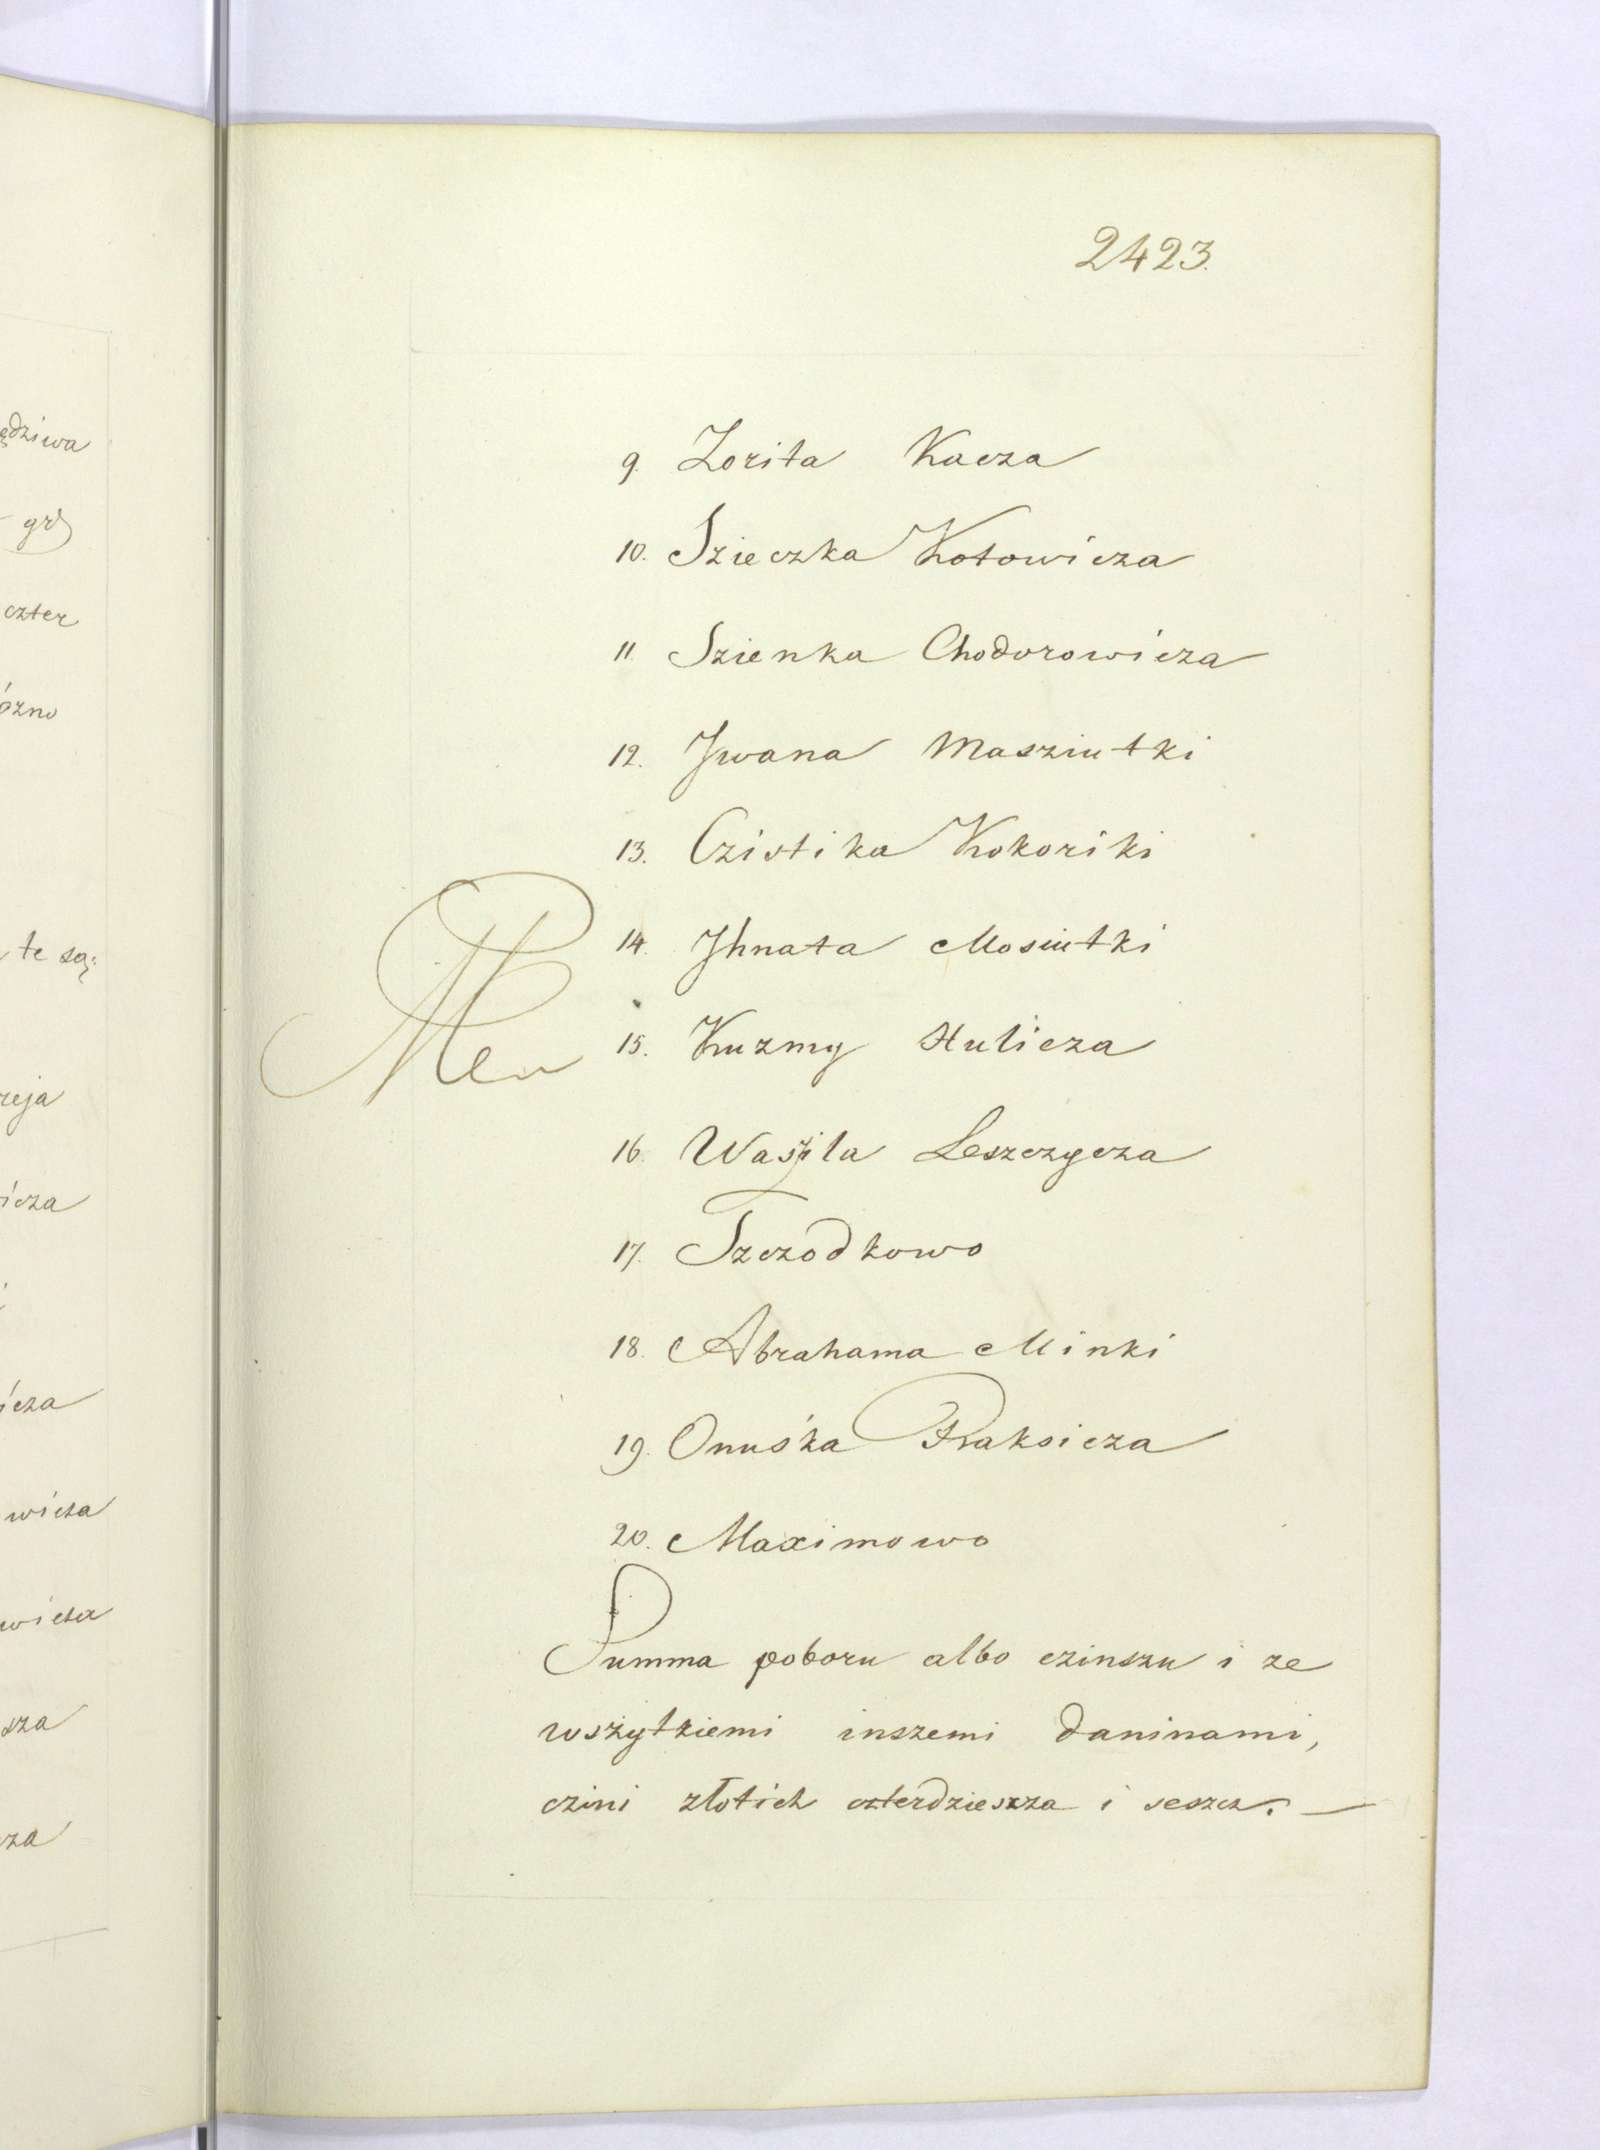 ędziwa
grz
czter
ózno
te są:
zeja
icza
icza
wicza
wicza
sza
cza
2423.
9. Zorita Kacza
10. Szieczka Kotowicza
11. Szienka Chodorowicza
12. Jwana Masziutki
13. Czistika Kokoriki
14. Jhnata Mosiutki
15. Kuzmy Hulicza
16. Waszila Leszczycza
17. Szczodkowo
18. Abrahama Minki
19. Onuśka Praksicza
20. Maximowo
Summa poboru albo czinszu i ze
wszytkiemi inszemi daninami,
czini złotich czterdziesza i seszcz. —